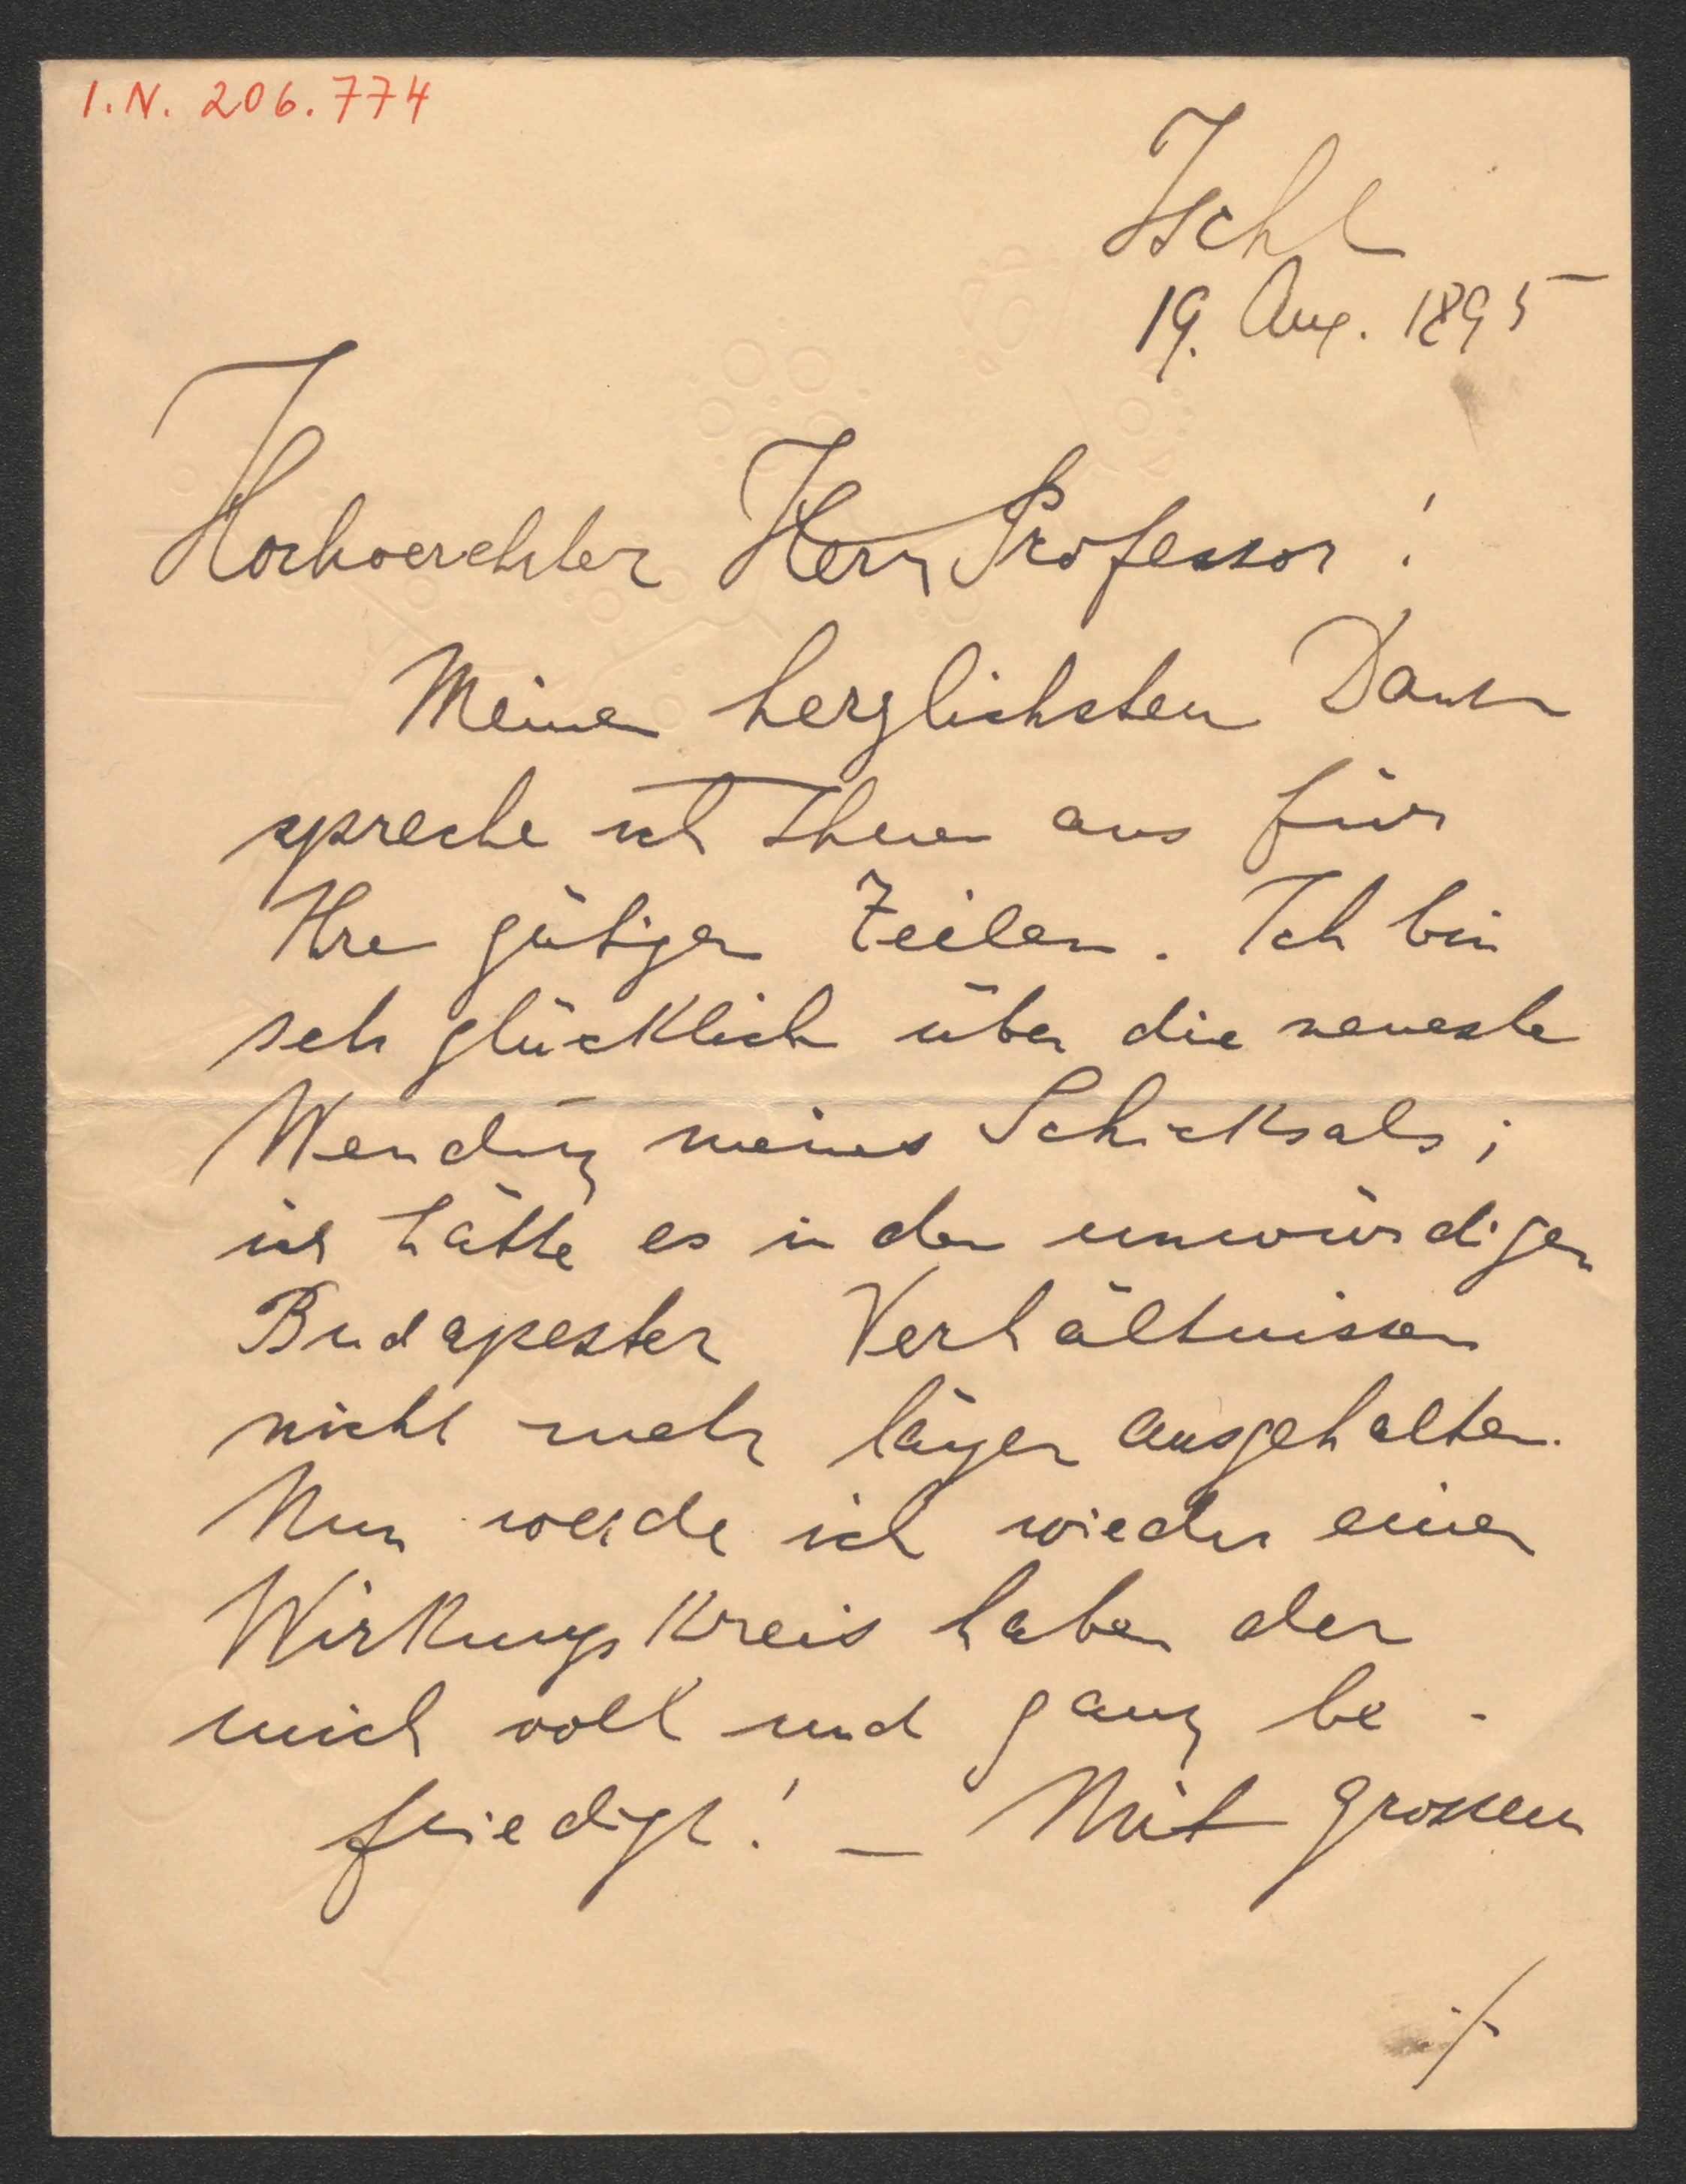 I.N. 206.774
Ischl
19. Aug. 1895
Hochverehrter Herr Professor!
Meinen herzlichsten Dank
spreche ich Ihnen aus für
Ihre gütigen Zeilen. Ich bin
sehr glücklich über die neueste
Wendung meines Schicksals;
ich hätte es in den unwürdigen
Budapester Verhältnissen
nicht mehr länger ausgehalten.
Nun werde ich wieder einen
Wirkungskreis haben der
mich voll und ganz be-
friedigt! – Mit grossem
./.